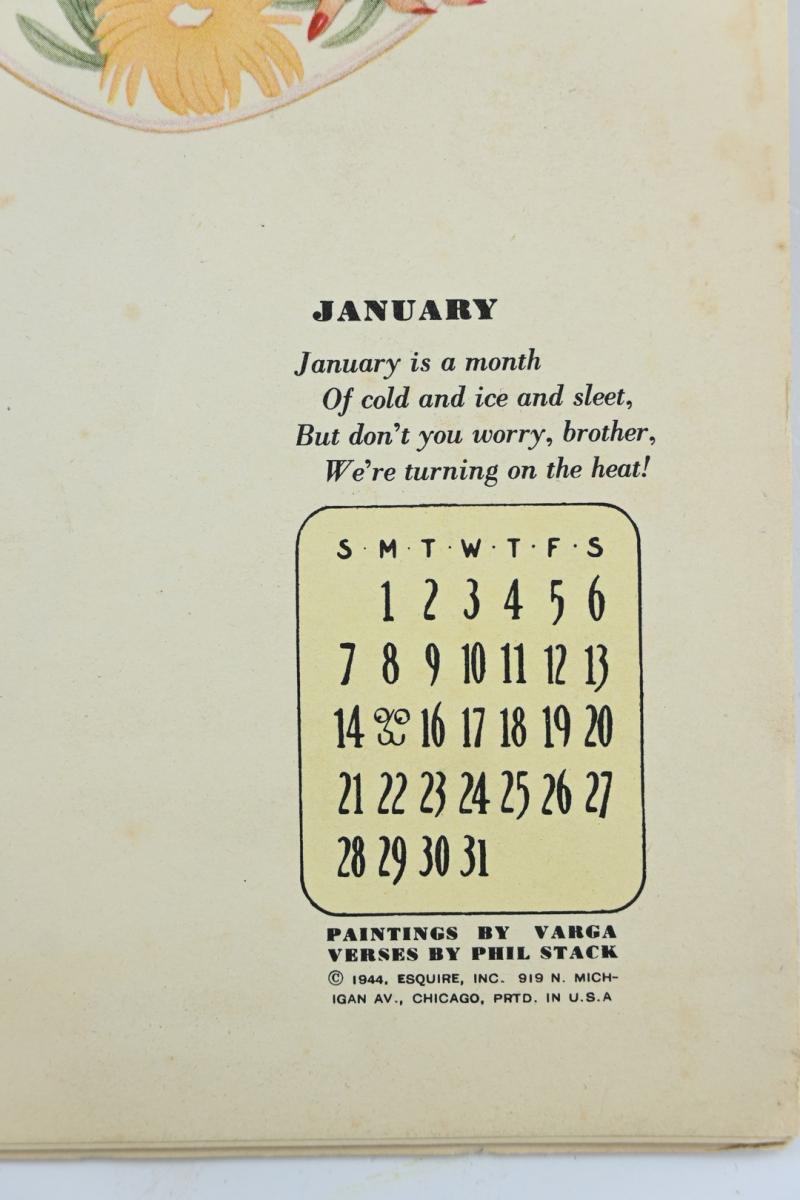 JANUARY
January is a month
Of cold and ice and sleet,
But don't you worry, brother,
We're turning on the heat!
S · M · T · W · T · F · S
1 2 3 4 5 6
7 8 9 10 11 12 13
14 16 17 18 19 20
21 22 23 24 25 26 27
28 29 30 31
PAINTINGS BY VARGA
VERSES BY PHIL STACK
© 1944, ESQUIRE, INC. 919 N. MICH-
IGAN AV., CHICAGO, PRTD. IN U.S.A